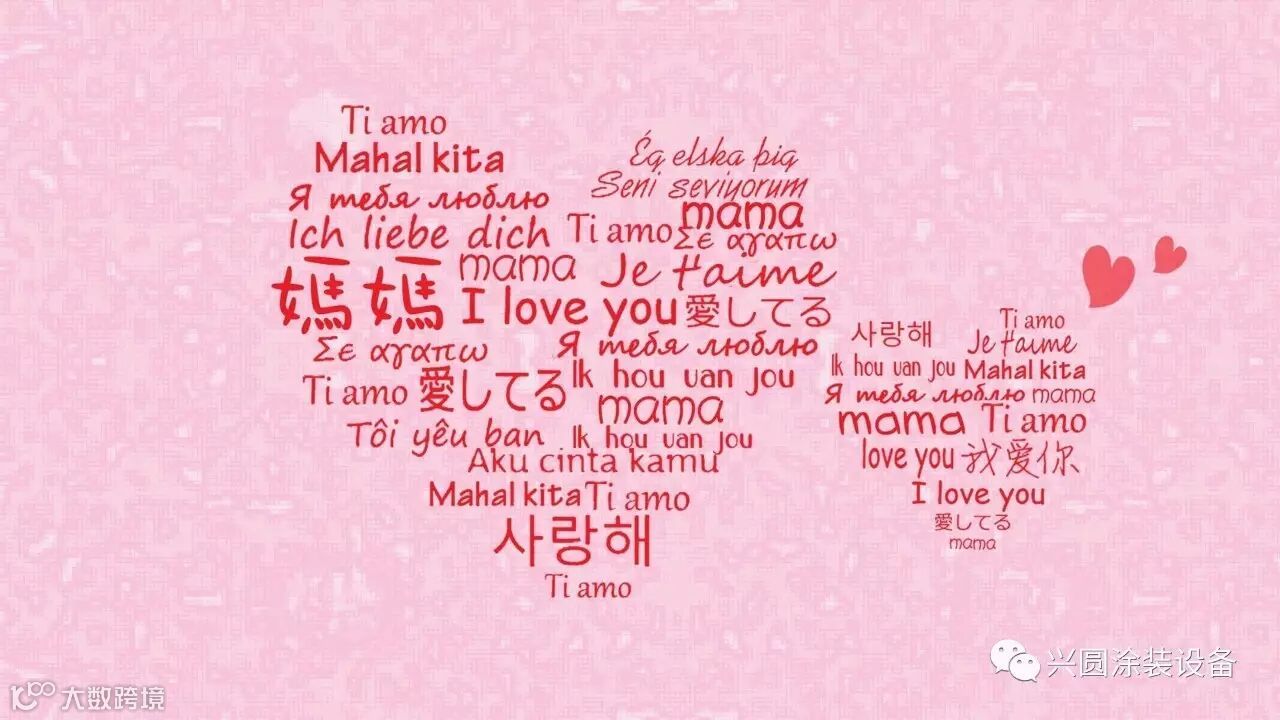 Ti amo
Mahal kita
Я тебя люблю
Ich liebe dich
Ég elska þig
Seni seviyorum
mama
Ti amo
Σε αγαπω
mama
Je t'aime
媽媽
I love you
愛してる
Σε αγαπω
Я тебя люблю
Ti amo
愛してる
Ik hou van jou
mama
Tôi yêu ban
Ik hou van jou
Aku cinta kamu
Mahal kita
Ti amo
사랑해
Ti amo
사랑해
Ti amo
Je t'aime
Ik hou van jou
Mahal kita
Я тебя люблю
mama
mama
Ti amo
love you
我爱你
I love you
愛してる
mama
兴圆涂装设备
大数跨境